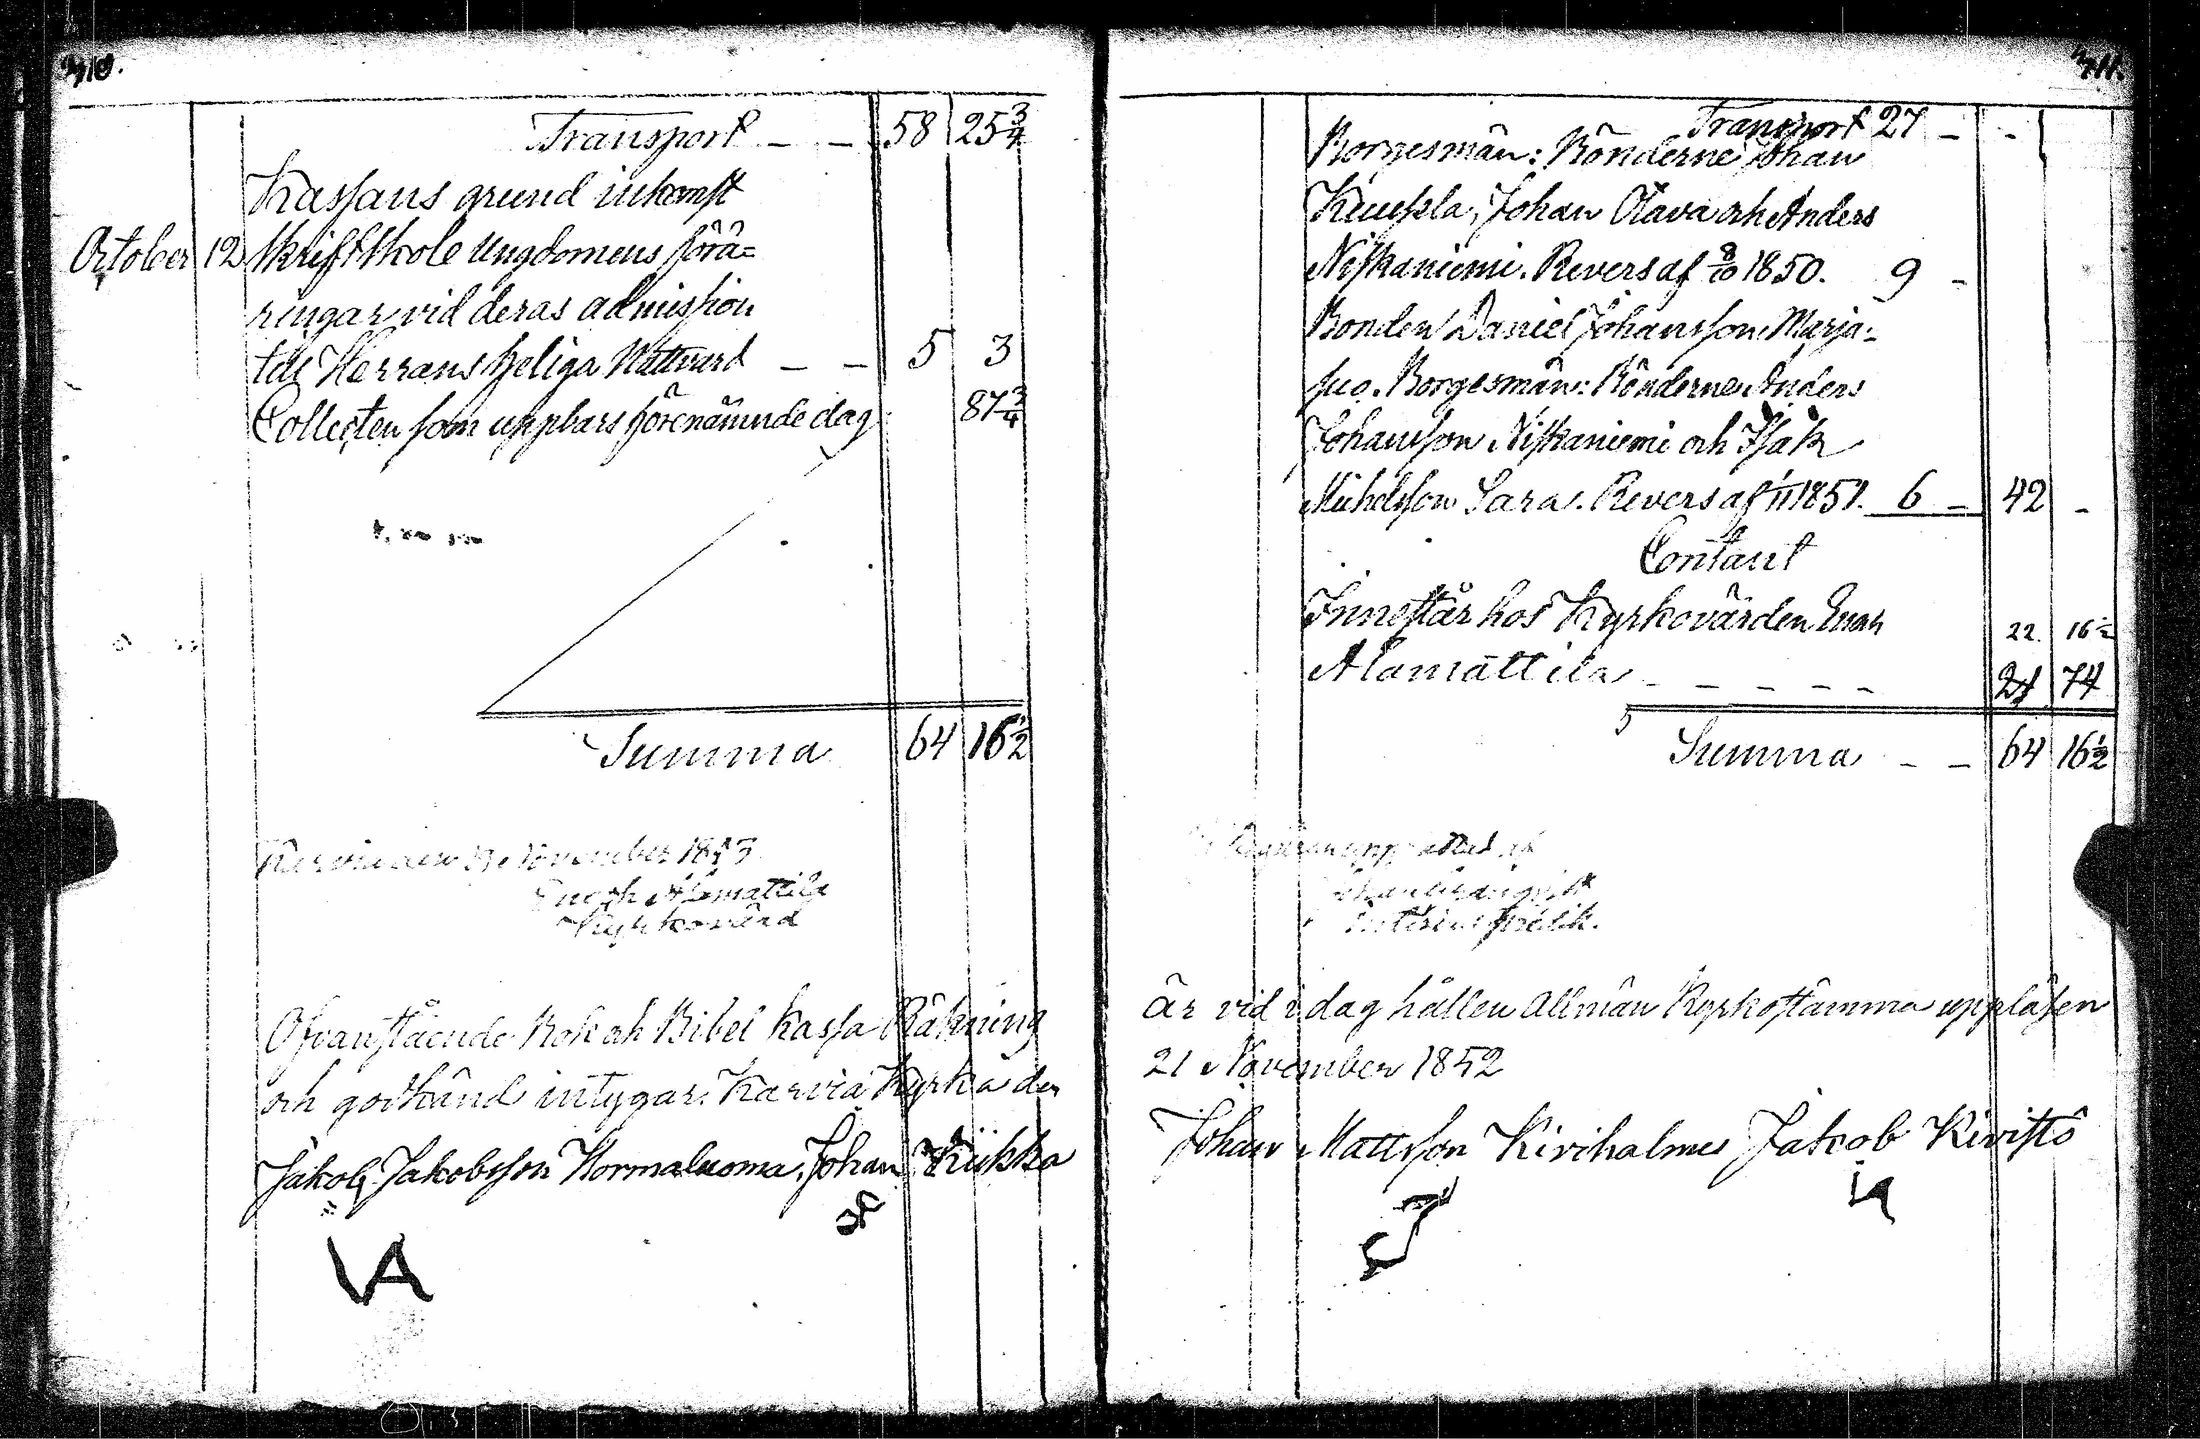 310.
Transport - - 58 25 3/4
Kassans grund inkomst
October 12 Skriftskole Ungdomens förä=
ringar vid deras admission
till Herrans Heliga Nattvard - - 5 3
Collecten som uppbars förenämnde dag 87 3/4
Summa 64 16 1/2
Karvia den November
Enoch Alamattila
Kyrkovärd
Ofvanstående Bok och Bibel kassa Räkning
och godkänd intygar. Karvia Kyrka den
Jakob Jakobsson Hormaluoma. Johan Kiikka
IA
311.
Transport 27 - -
Borgesmän: Bönderne Johan
Johan Ojava och Anders
Niskaniemi. Revers af 8/10 1850. 9 -
Bonden Daniel Johansson Marja-
suo. Borgesmän: Bönderne Anders
Johansson Niskaniemi och Isak
Michelsson Sara. Revers af 1/11 1851. 6 - 42 -
Contant
Innestår hos Kyrkovärden Enoch 22. 16 1/2
Alamattila - - - - - 21 74
Summa - - 64 16 1/2
upprättad af
predik.
Är vid i dag hållen Allmän Kyrkostämma uppläsen
21 November 1852
Johan Mattsson Kirihalmes Jakob Kivistö